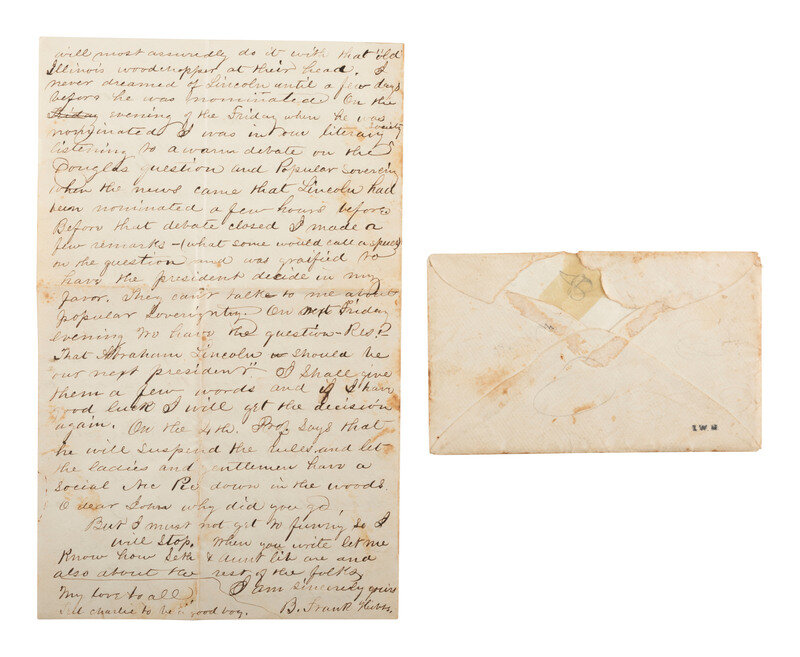 will most assuredly do it with that "old
Illinois woodchopper at their head. I
never dreamed of Lincoln until a few days
before he was nominated On the
Friday evening of the Friday when he was
nominated I was in our literary Society
listening to a warm debate on the
Douglas question and Popular Soverein
when the news came that Lincoln had
been nominated a few hours before
Before that debate closed I made a
few remarks - (what some would call a speech)
on the question and was gratified to
have the president decide in my
favor. They can't talk to me about
popular Sovereignty. On next Friday
evening we have the question - Res?
That Abraham Lincoln should be
our next president" I shall give
them a few words and if I have
good luck I will get the decision
again. On the 4th. Prof says that
he will suspend the rules and let
the ladies and gentlemen have a
social Pic Nic down in the woods.
O dear John why did you go,
But I must not get to funny so I
will stop. When you write let me
know how Seth & Aunt Lib are and
also about the rest of the folks
I am sincerely yours
My love to all
B. Frank
Tell Charlie to be a good boy.
I.W.H